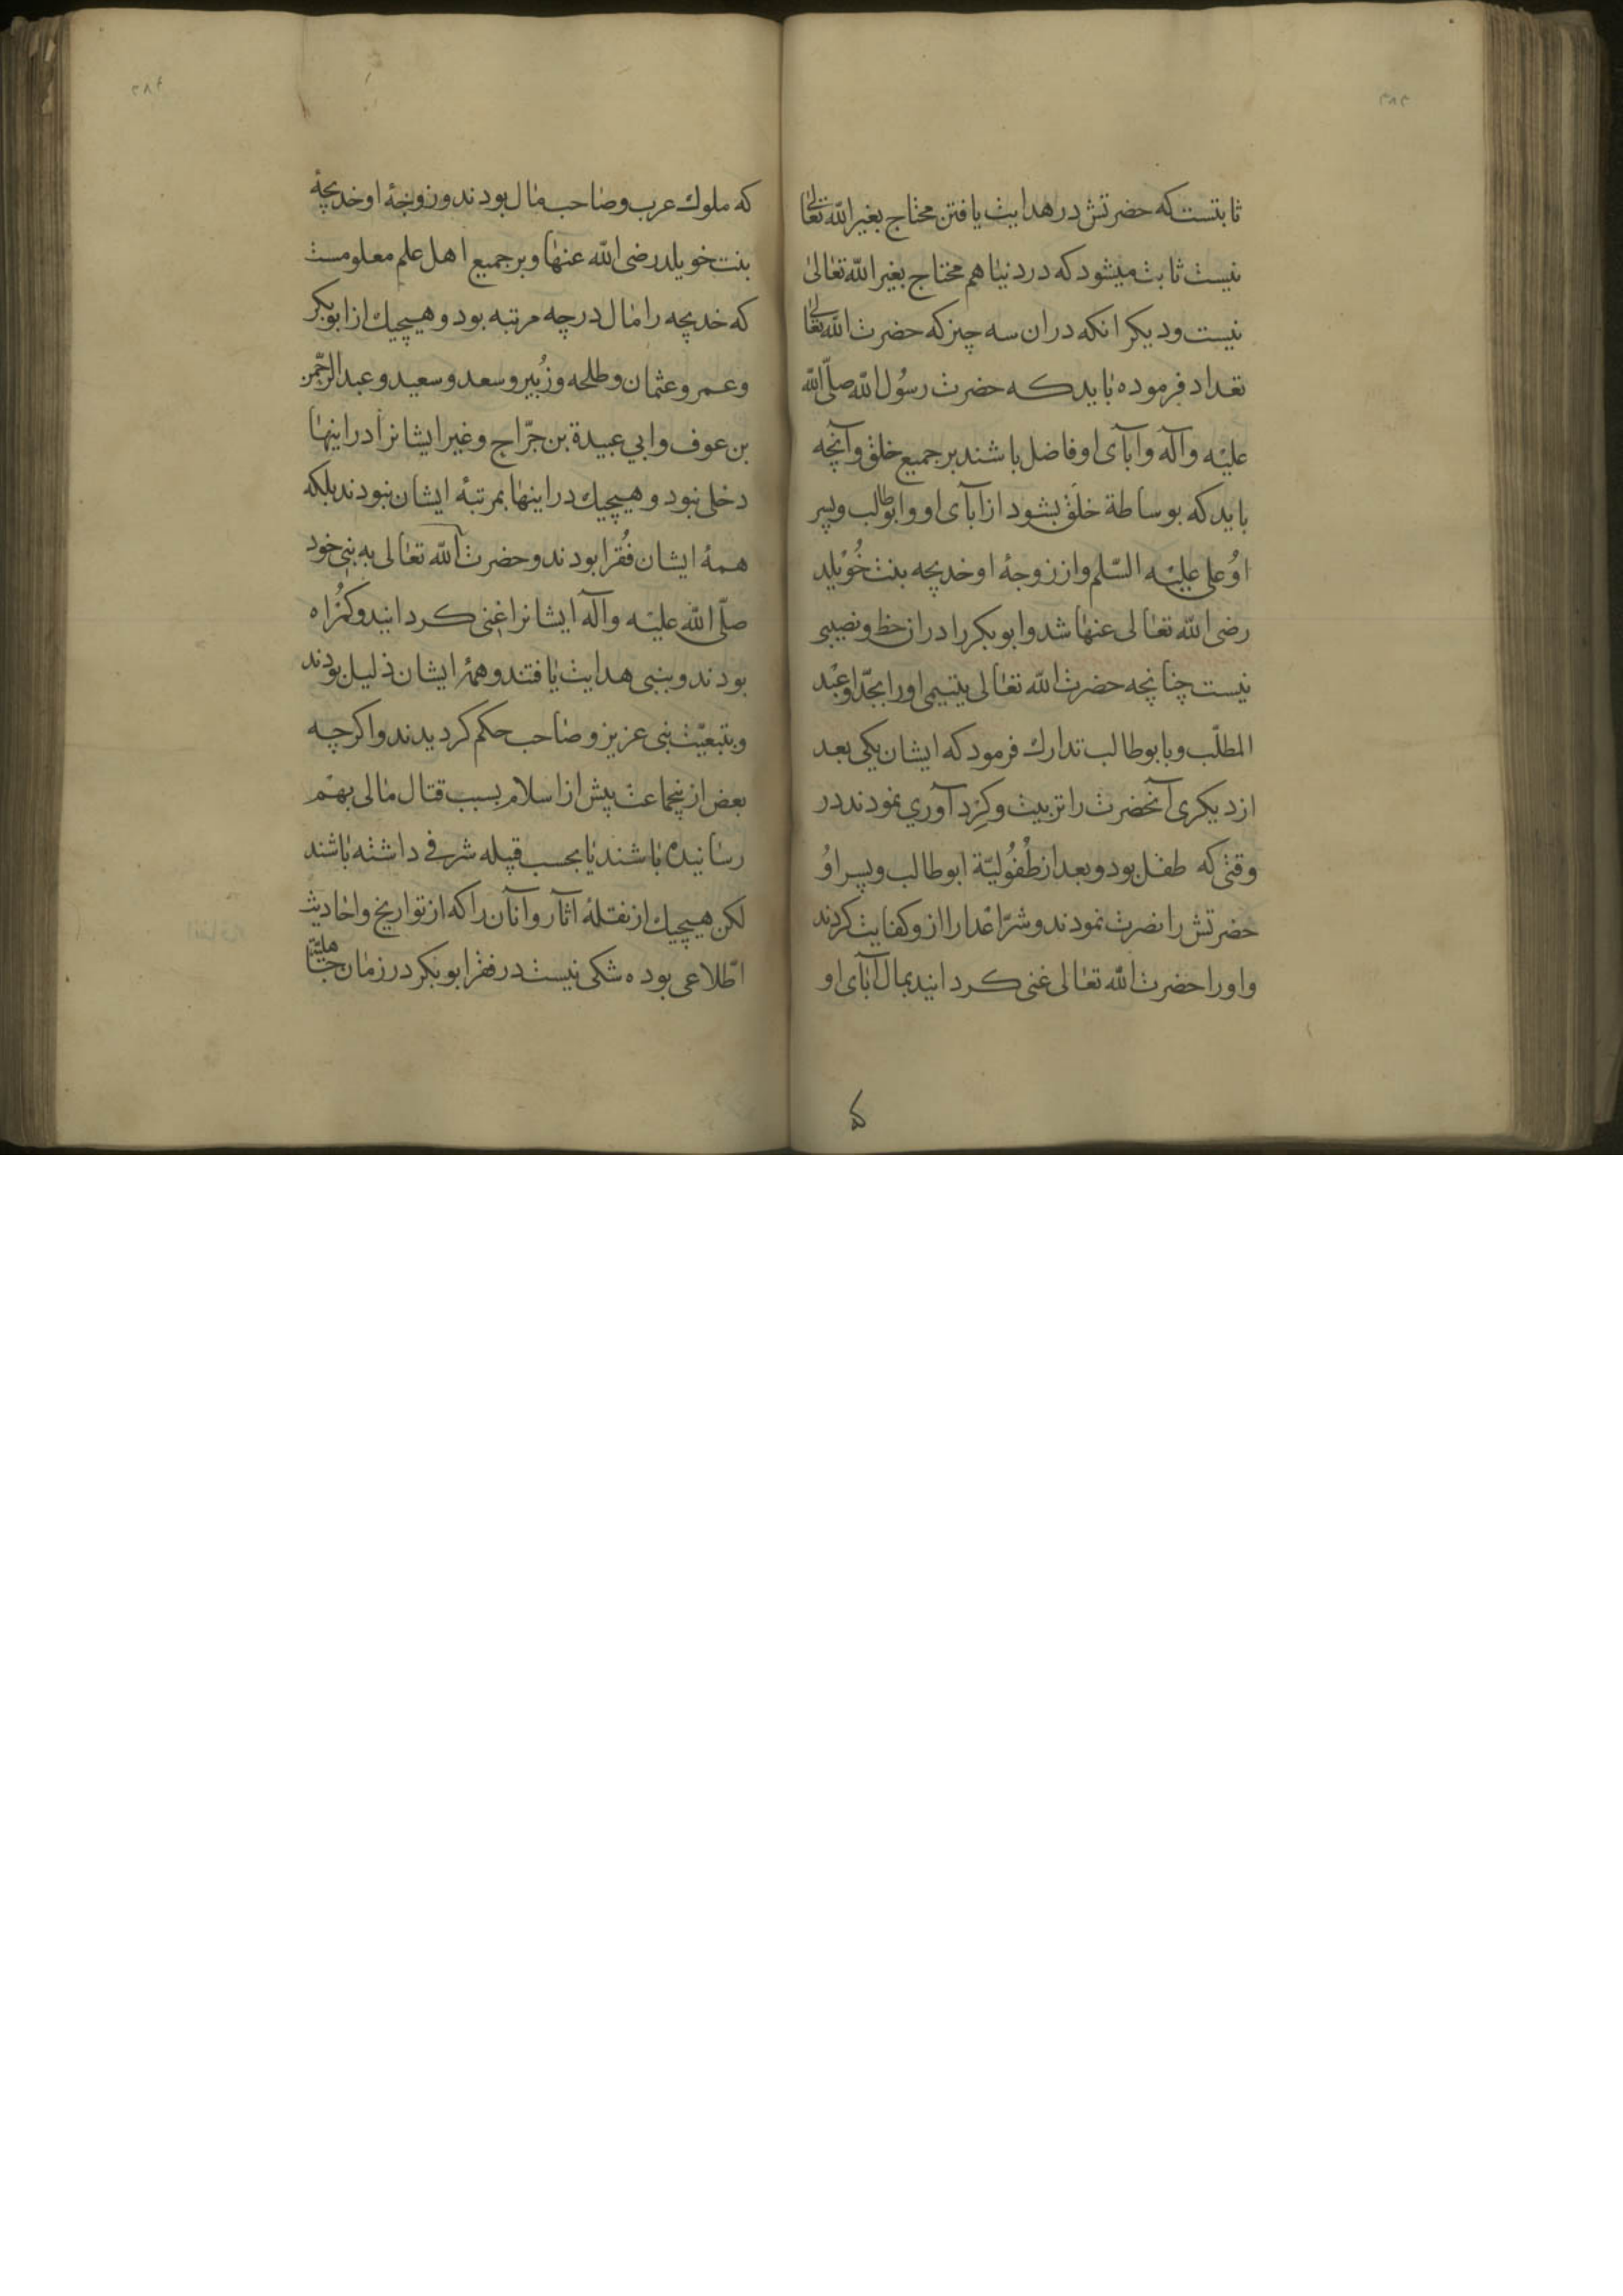 ۳۸۳
ثابتست که حضرتش در هدایت یافتن محتاج بغیر الله تعالی
نیست ثابت میشود که در دنیا هم محتاج بغیر الله تعالی
نیست و دیکر انکه دران سه چیز که حضرت الله تعالی
تعداد فرموده باید که حضرت رسُول الله صلّی الله
علیْه وآله وآبآی او فاضل باشند بر جمیع خلق وآنچه
باید که بوساطة خلق بشود از آبآی او و ابوطالب و پسر
اوُ علی علیْه السّلم و از زوجهٔ او خدیجه بنت خُوَیْلِد
رضی الله تعالی عنها شد و ابوبکر را دران حظ و نصیبی
نیست چنانچه حضرت الله تعالی یتیمی او را بجدّ او عبْد
المطلّب و بابوطالب تدارك فرمود که ایشان یکی بعد
از دیکری آنحضرت را تربیت و کِرْد آوري نمودند در
وقتی که طفل بود و بعد از طُفُولیّة ابوطالب و پسر اوُ
حضرتش را نصرت نمودند و شرّ اعْدا را از و کفایت کردند
و او را حضرت الله تعالی غنی کردانید بمال آبآی او
که
۳۸۴
که ملوك عرب و صاحب مال بودند و زوجهٔ او خدیجهٔ
بنت خویلد رضی الله عنها و بر جمیع اهل علم معلومست
که خدیجه را مال درچه مرتبه بود و هیچیك از ابوبکر
و عمر و عثمان و طلحه و زُبیر و سعد و سعید و عبد الرّحمن
بن عوف و ابي عبیدة بن جرّاح و غیر ایشانرا در اینها
دخلی نبود و هیچیك در اینها بمرتبهٔ ایشان نبودند بلکه
همهٔ ایشان فُقرا بودند و حضرت الله تعالی به نبی خود
صلّی الله علیْه وآله ایشانرا غنی کردانید و کمْراه
بودند و بنبی هدایت یافتند و همهٔ ایشان ذلیل بودند
و بتبعیّت نبی عزیز و صاحب حکم کردیدند و اکرچه
بعض ازینجماعت پیش از اسلام بسبب قتال مالی بهم
رسانیده باشند یا بحسب قبیله شرفی داشته باشند
لکن هیچیك از نقلهٔ اثار و آنان را که از تواریخ و احادیث
اطّلاعی بوده شکی نیست در فقر ابوبکر در زمان جاهلیّة